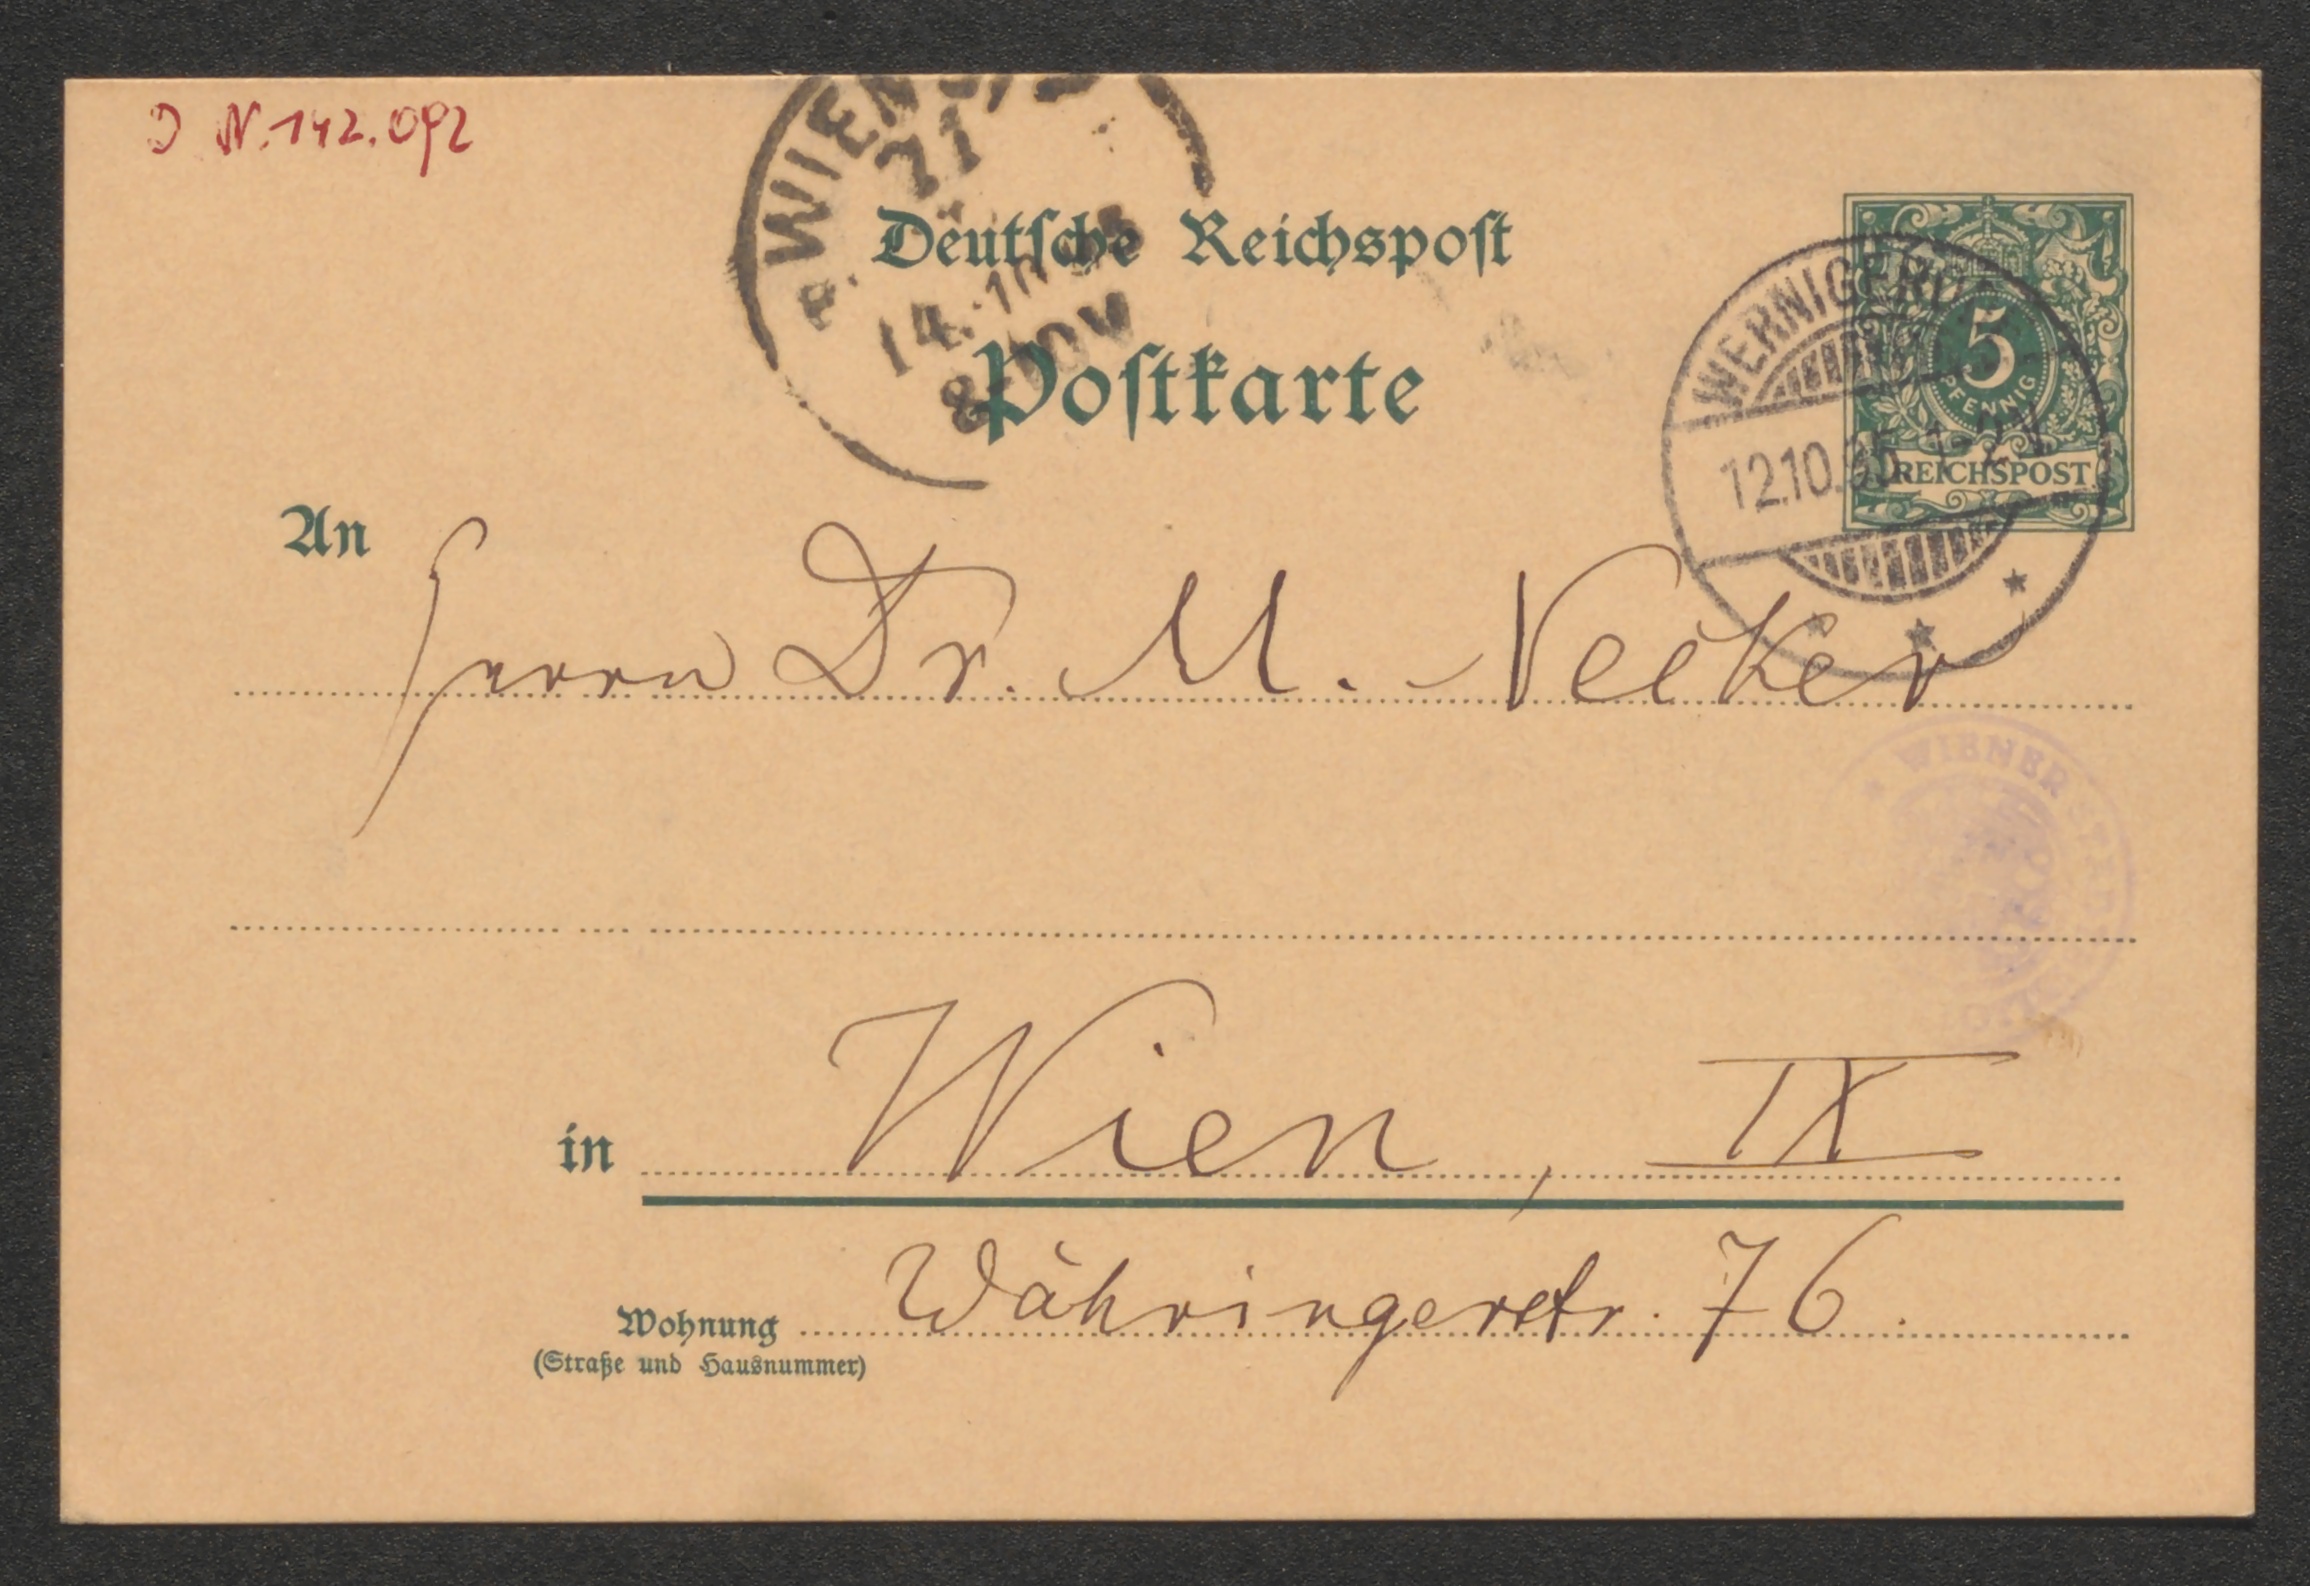 J N. 142.092
WIEN
71
14.10.95
8-10V
Deutsche Reichspost
Postkarte
WERNIGERODE
12.10.95 1-2N
5
PFENNIG
REICHSPOST
An
Herrn Dr. M. Necker
WIENER STADT
in Wien, IX
Wohnung Währingerstr. 76.
(Straße und Hausnummer)